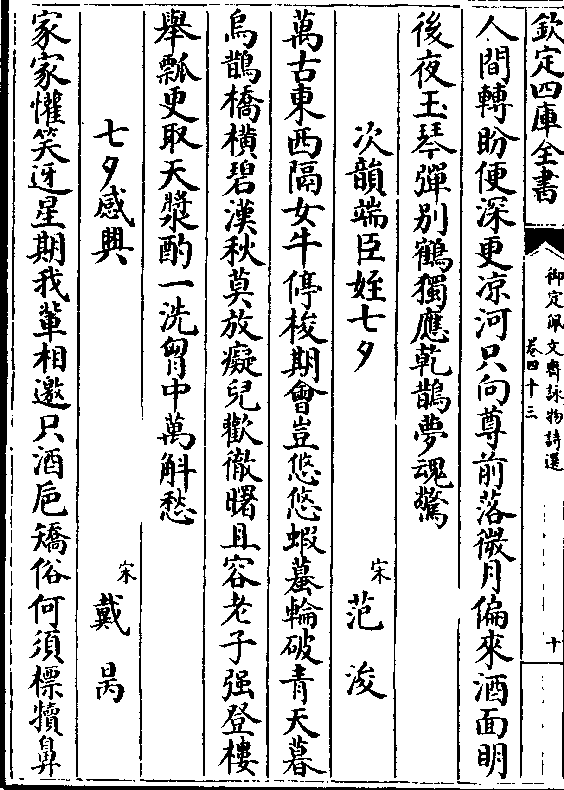 欽定四庫全書
御定佩文齋詠物詩選
卷四十三
十
人間轉盼便深更凉河只向尊前落微月偏來酒面明
後夜玉琴彈别鶴獨應乾鵲夢魂驚
次韻端臣姪七夕
宋
范浚
萬古東西隔女牛停梭期會豈悠悠蝦蟇輪破青天暮
烏鵲橋横碧漢秋莫放癡兒歡徹曙且容老子强登樓
舉瓢更取天漿酌一洗胷中萬斛愁
七夕感興
宋
戴昺
家家懽笑迓星期我軰相邀只酒巵矯俗何須標犢鼻